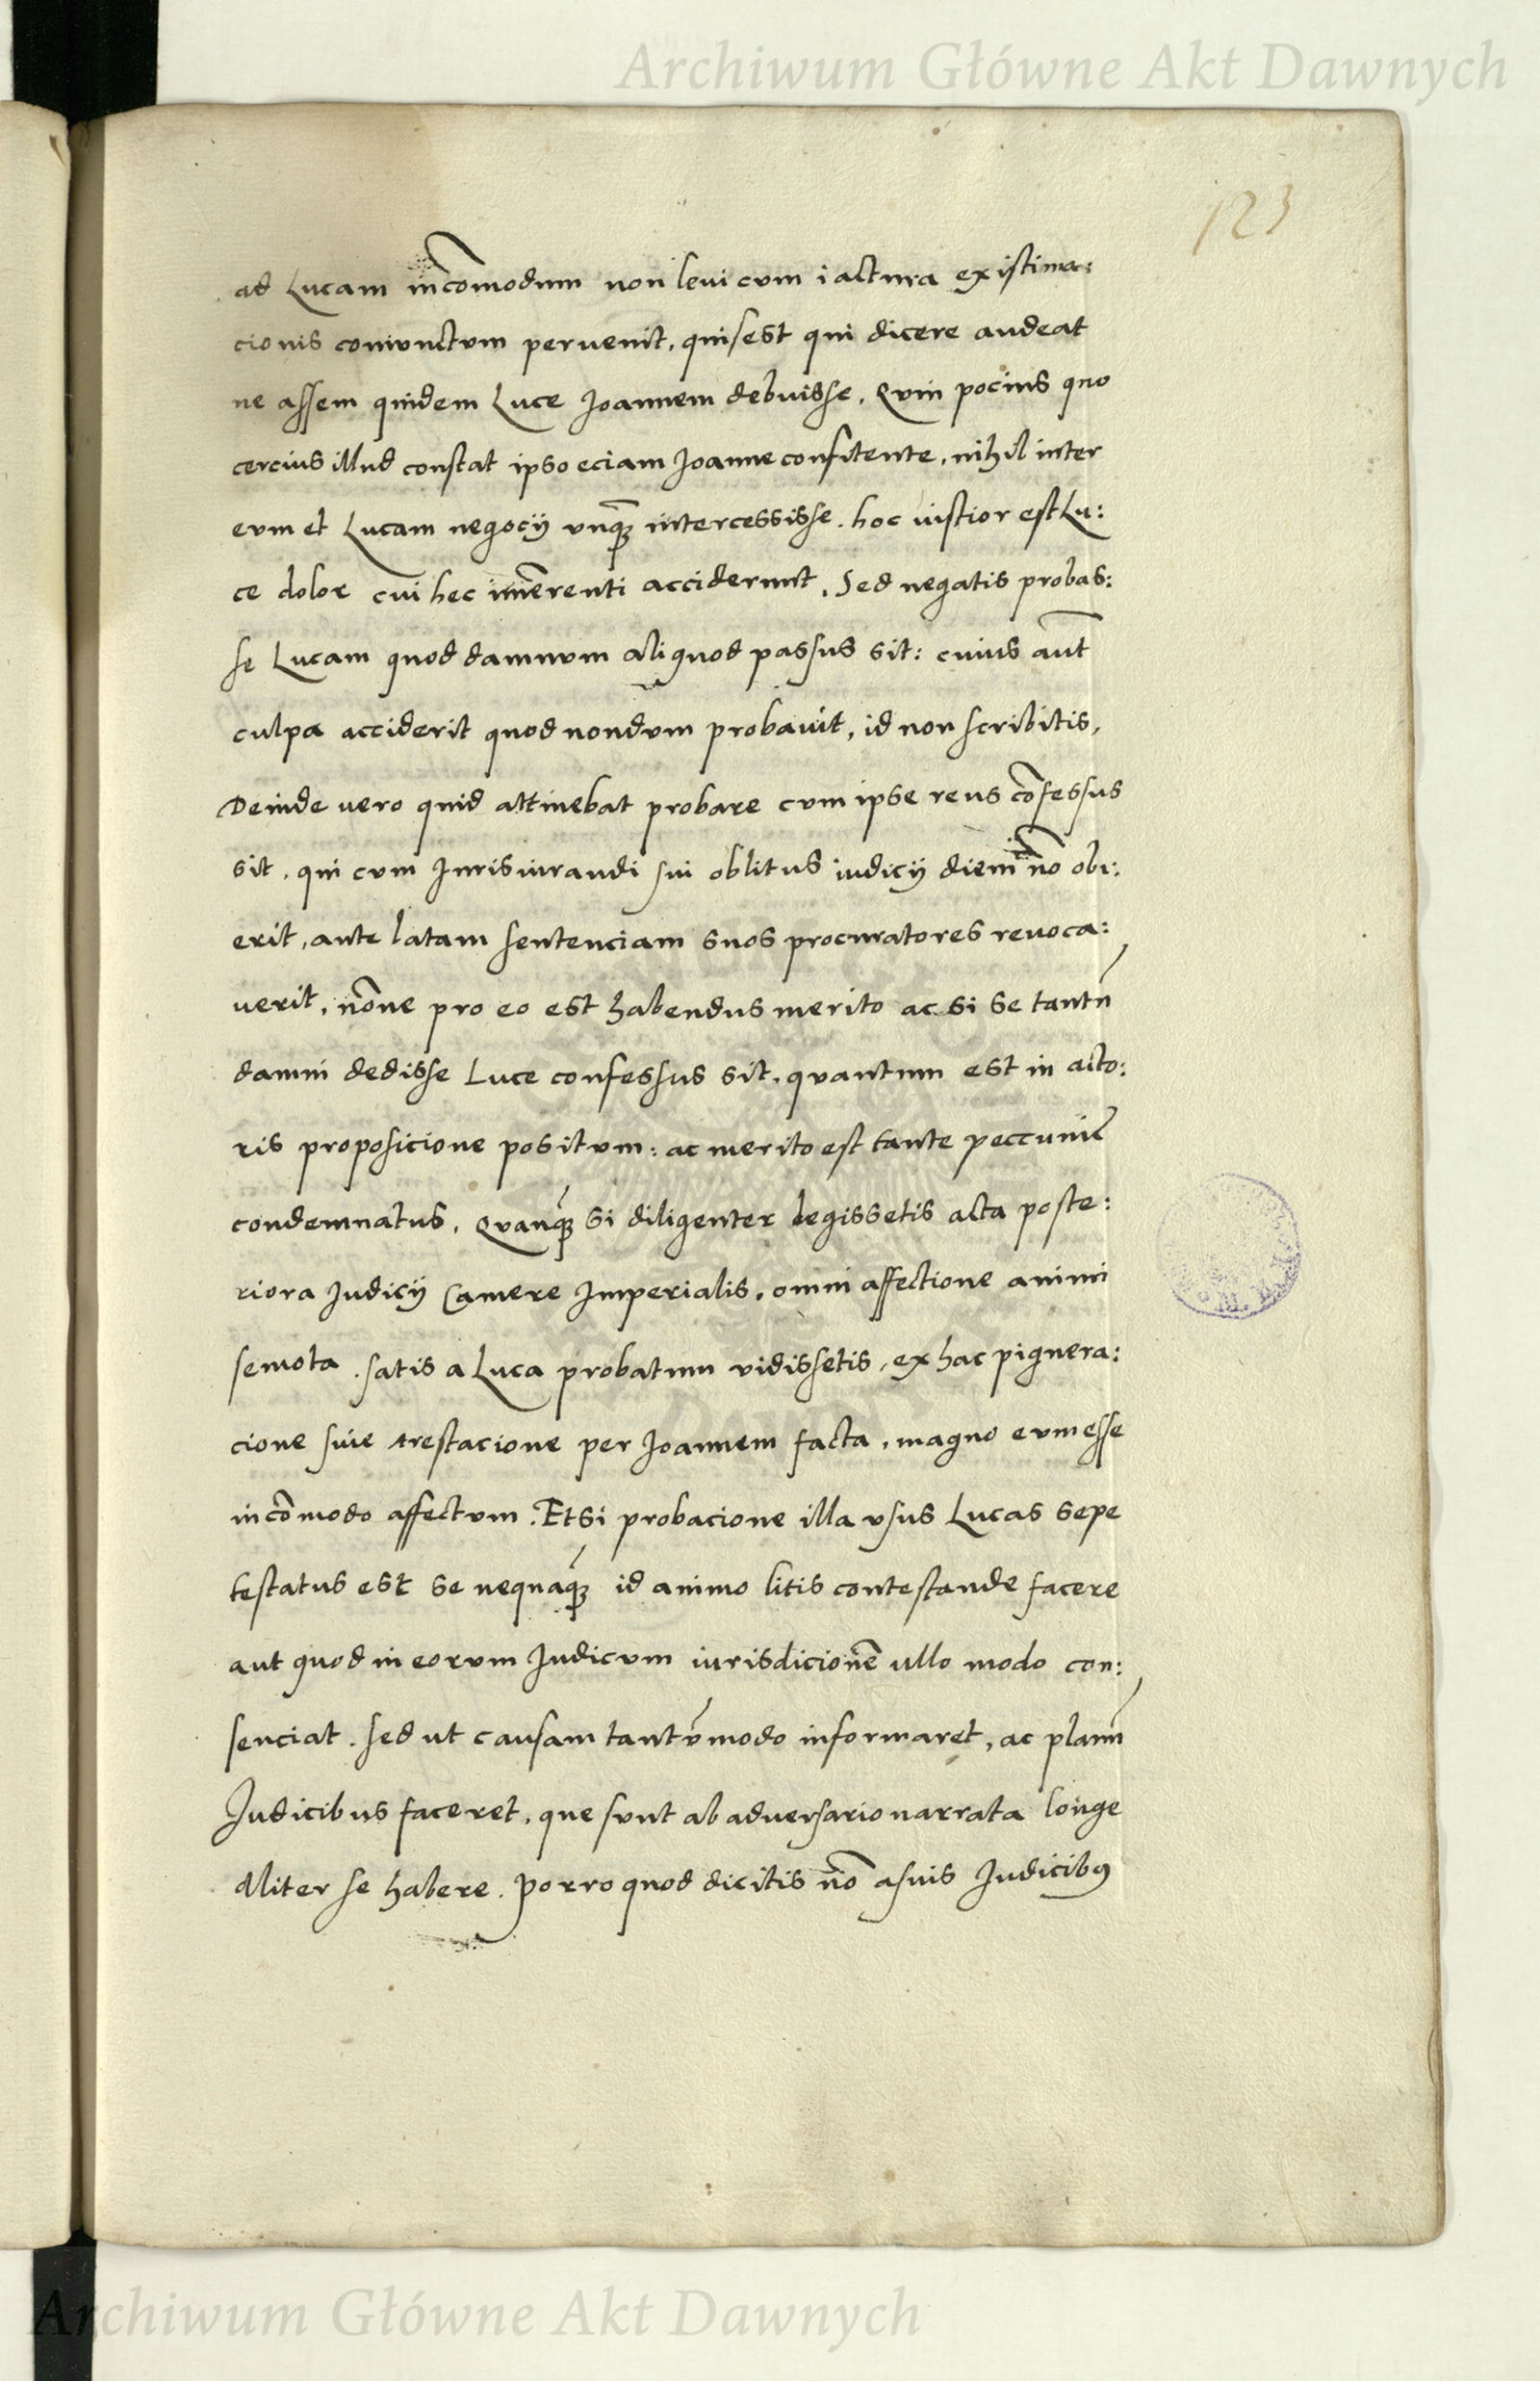 Archiwum Główne Akt Dawnych
123
ad Lucam incõmodum non leui cum iactura existima:
cionis coniunctum peruenit, quis est qui dicere audeat
ne assem quidem Luce Joannem debuisse. Quin pocius quo
cercius illud constat ipso eciam Joanne confitente, nihil inter
eum et Lucam negocij unq̃ꝫ intercessisse. hoc iustior est Lu:
ce dolor cui hec im̃erenti acciderunt. Sed negatis probas:
se Lucam quod damnum aliquod passus sit: cuius aũt
culpa acciderit quod nondum probauit, id non scribitis,
Deinde uero quid attinebat probare cum ipse reus cõfessus
sit. qui cum Jurisiurandi sui oblitus iudicij diem nõ obi:
erit, ante latam sentenciam suos procuratores reuoca:
uerit, nõne pro eo est habendus merito ac si se tantũ
damni dedisse Luce confessus sit, quantum est in acto:
ris proposicione positum: ac merito est tante peccunie
condemnatus. Quanq̃ꝫ si diligenter legissetis acta poste:
riora Judicij Camere Imperialis, omni affectione animi
semota. satis a Luca probatum vidissetis, ex hac pignera:
cione siue arestacione per Joannem facta, magno eum esse
incõmodo affectum. Etsi probacione illa vsus Lucas sepe
testatus est se nequaq̃ꝫ id animo litis contestande facere
aut quod in eorum Judicum iurisdicionẽ ullo modo con:
senciat. sed ut causam tantũmodo informaret, ac planũ
Judicibus faceret, que sunt ab adversario narrata longe
aliter se habere. Porro quod dicitis nõ a suis Judicibꝰ
Archiwum Główne Akt Dawnych